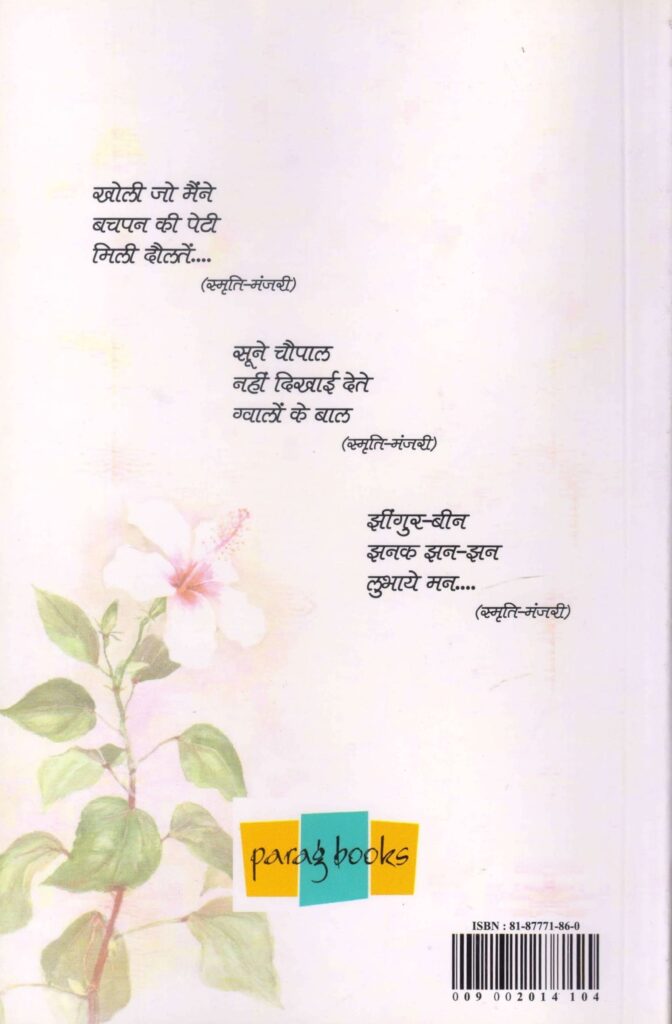 खोली जो मैंने
बचपन की पेटी
मिली दौलतें....
(स्मृति-मंजरी)
सूने चौपाल
नहीं दिखाई देते
ग्वालों के बाल
(स्मृति-मंजरी)
झींगुर-बीन
झनक झन-झन
लुभाये मन....
(स्मृति-मंजरी)
parag books
ISBN : 81-87771-86-0
009 002014 104